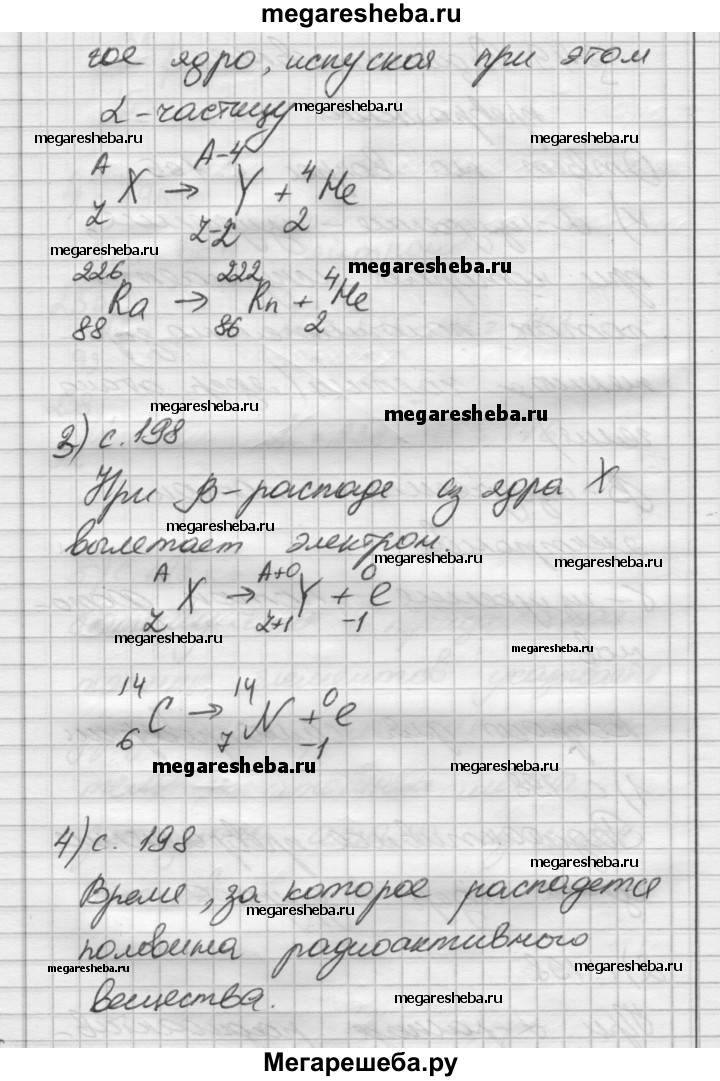 megaresheba.ru
гое ядро, испуская при этом
α-частицу megaresheba.ru
megaresheba.ru megaresheba.ru
A A-4 4
X → Y + He
Z Z-2 2
megaresheba.ru
megaresheba.ru
226 222 4
Ra → Rn + He
88 86 2
megaresheba.ru
megaresheba.ru
3) с. 198
При β-распаде из ядра X
megaresheba.ru
вылетает электрон.
megaresheba.ru megaresheba.ru
A A+0 0
X → Y + e
Z Z+1 -1
megaresheba.ru
megaresheba.ru
14 14 0
C → N + e
6 7 -1
megaresheba.ru megaresheba.ru
4) с. 198
megaresheba.ru
Время, за которое распадется
megaresheba.ru
половина радиоактивного
megaresheba.ru megaresheba.ru
вещества.
megaresheba.ru
Мегарешеба.ру